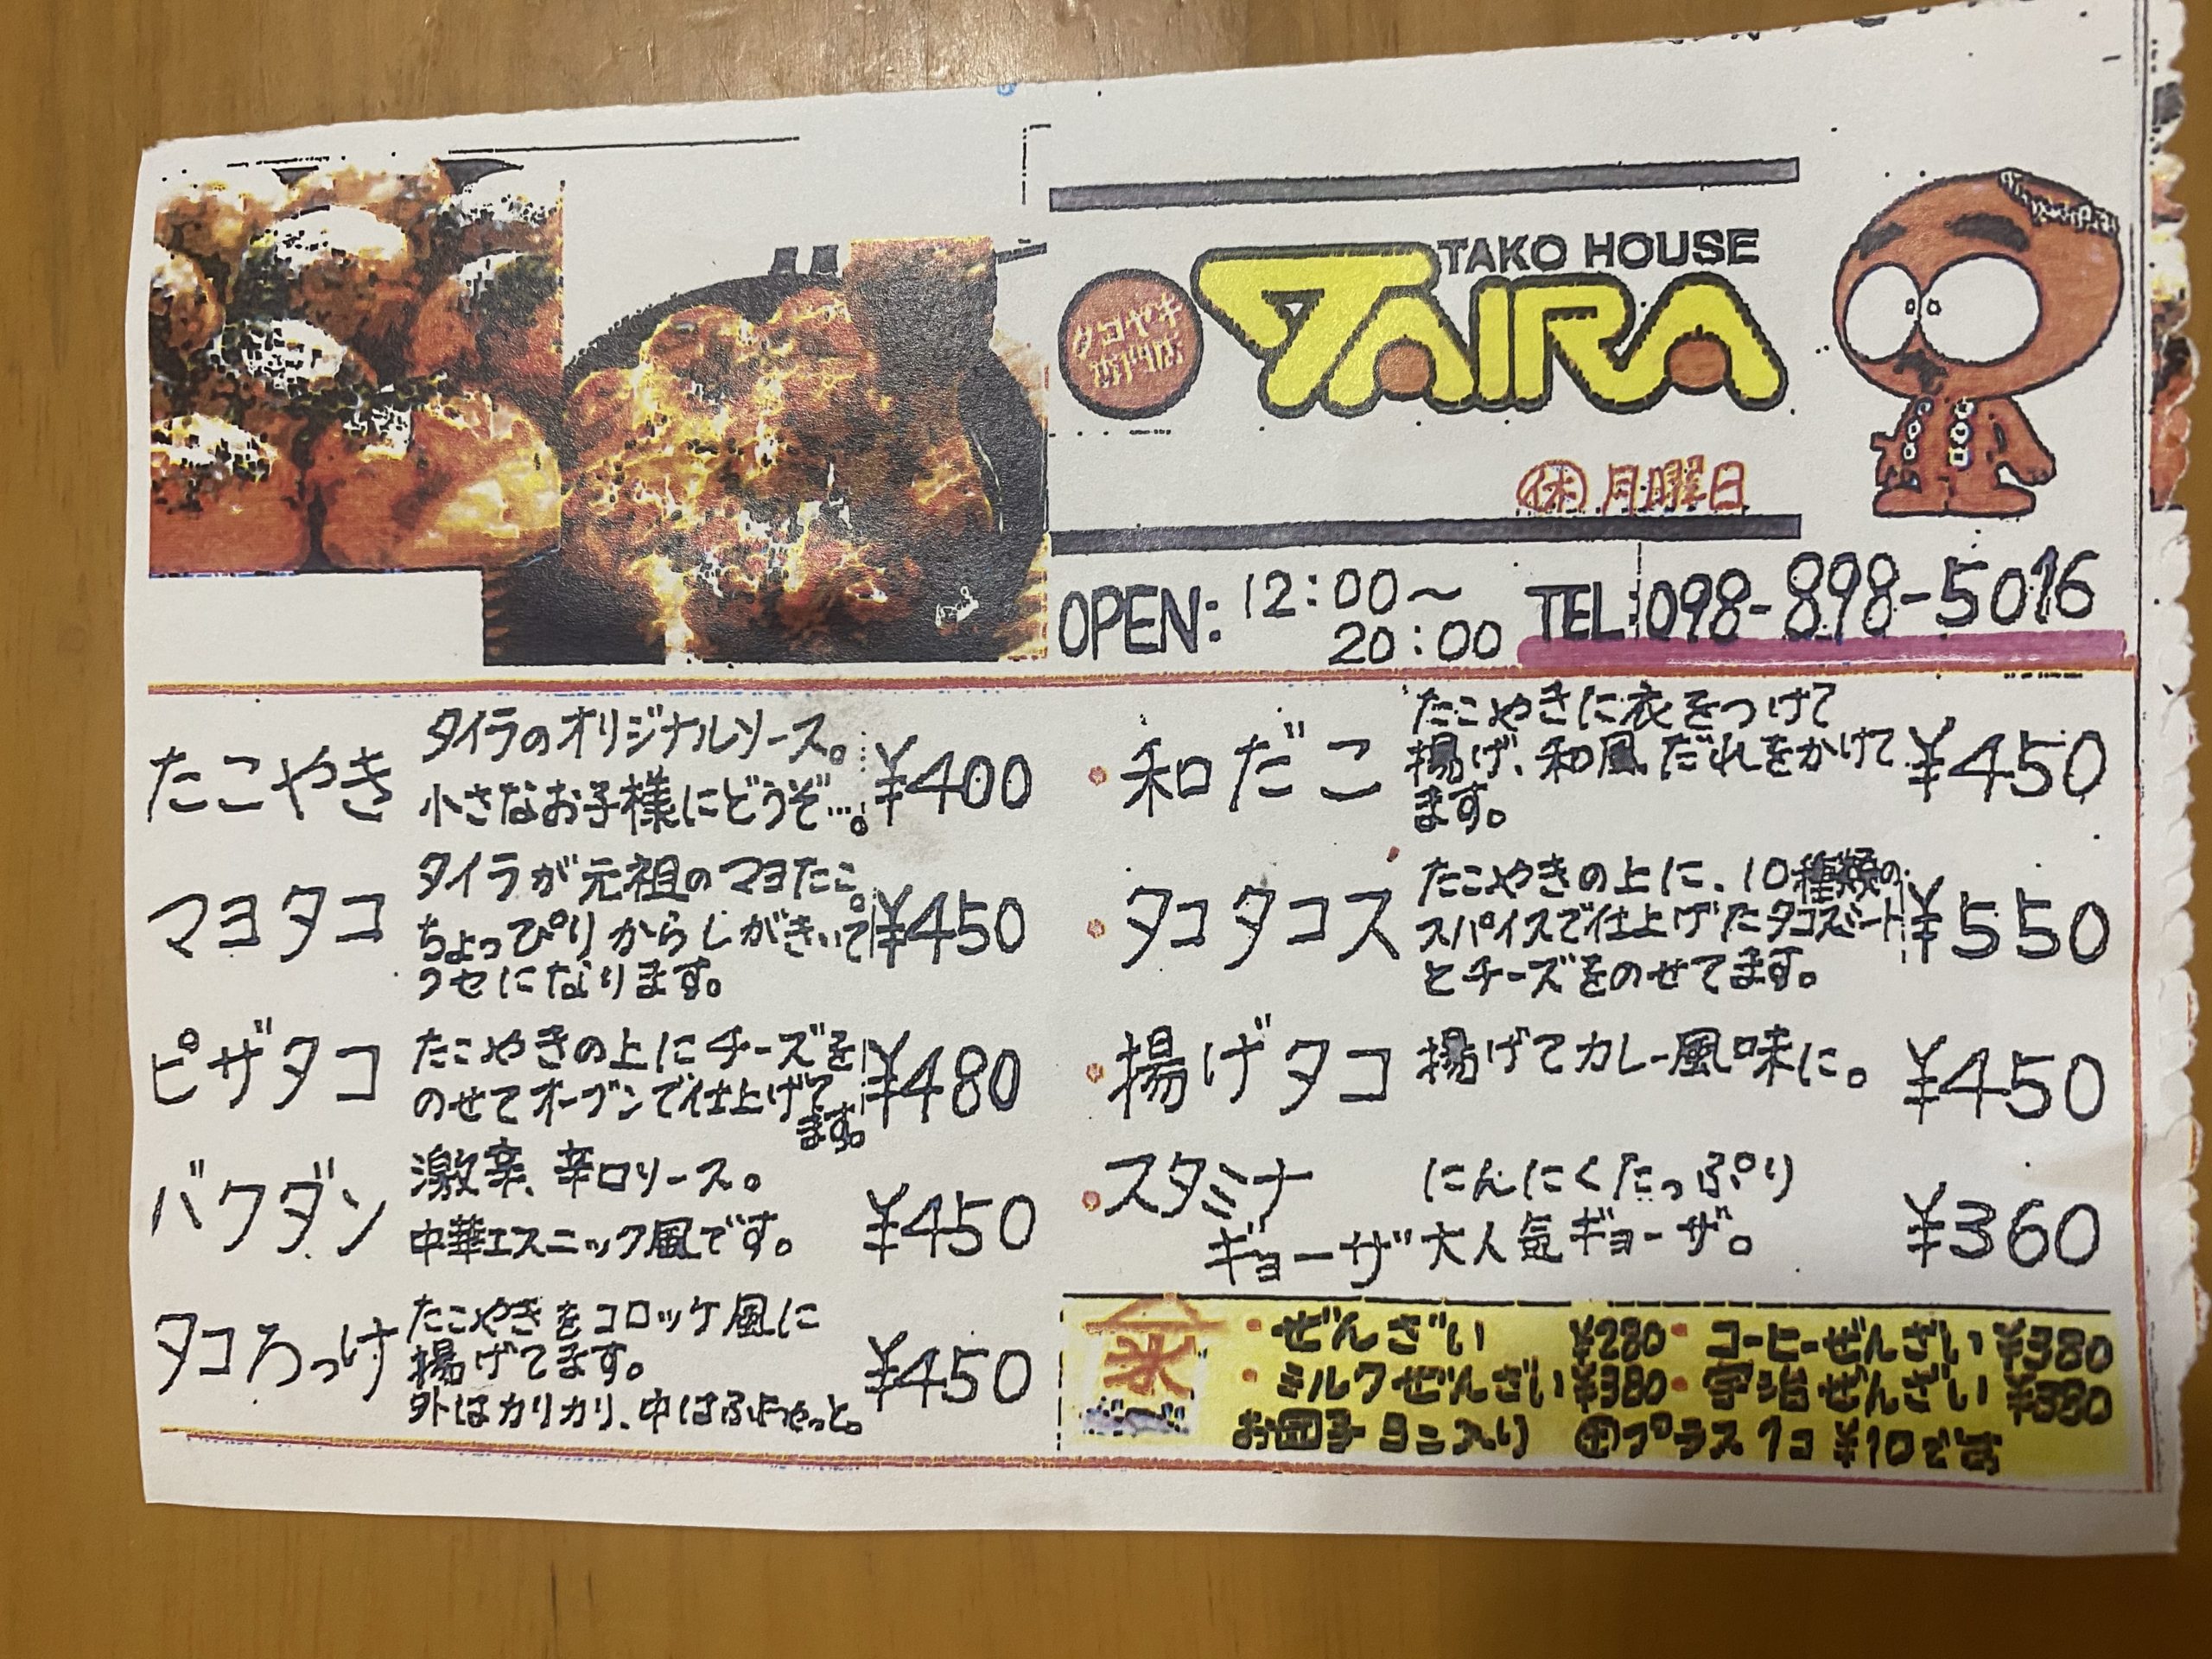 TAKO HOUSE
TAIRA
タコヤキ
㊡月曜日
OPEN: 12:00~
20:00
TEL:098-898-5016
たこやき
タイラのオリジナルソース。
小さなお子様にどうぞ…。
¥400
マヨタコ
タイラが元祖のマヨたこ。
ちょっぴりからしがきいて
クセになります。
¥450
ピザタコ
たこやきの上にチーズを
のせてオーブンで仕上げて
ます。
¥480
バクダン
激辛、辛口ソース。
中華エスニック風です。
¥450
タコろっけ
たこやきをコロッケ風に
揚げてます。
外はカリカリ、中は
¥450
・和だこ
たこやきに衣をつけて
揚げ、和風だれをかけて
ます。
¥450
・タコタコス
たこやきの上に、10種類の
スパイスで仕上げたタコスミート
とチーズをのせてます。
¥550
・揚げタコ
揚げてカレー風味に。
¥450
・スタミナ
ギョーザ
にんにくたっぷり
大人気ギョーザ。
¥360
・ぜんざい ¥280 ・コーヒーぜんざい ¥380
・ミルクぜんざい ¥380 ・宇治ぜんざい ¥380
お団子3コ入り プラス1コ ¥10です